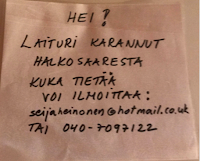 HEI!
LAITURI KARANNUT
HALKOSAARESTA
KUKA TIETÄÄ
VOI ILMOITTAA:
seijaheinonen@hotmail.co.uk
TAI 040-7097122